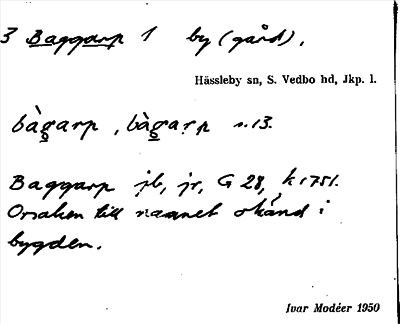 3 Baggarp 1 by (gård).
Hässleby sn, S. Vedbo hd, Jkp. l.
bàg̰arp, bàg̰ar̥p s. 13.
Baggarp jb, jr, G 28, k 1751.
Orsaken till namnet okänd i
bygden.
Ivar Modéer 1950